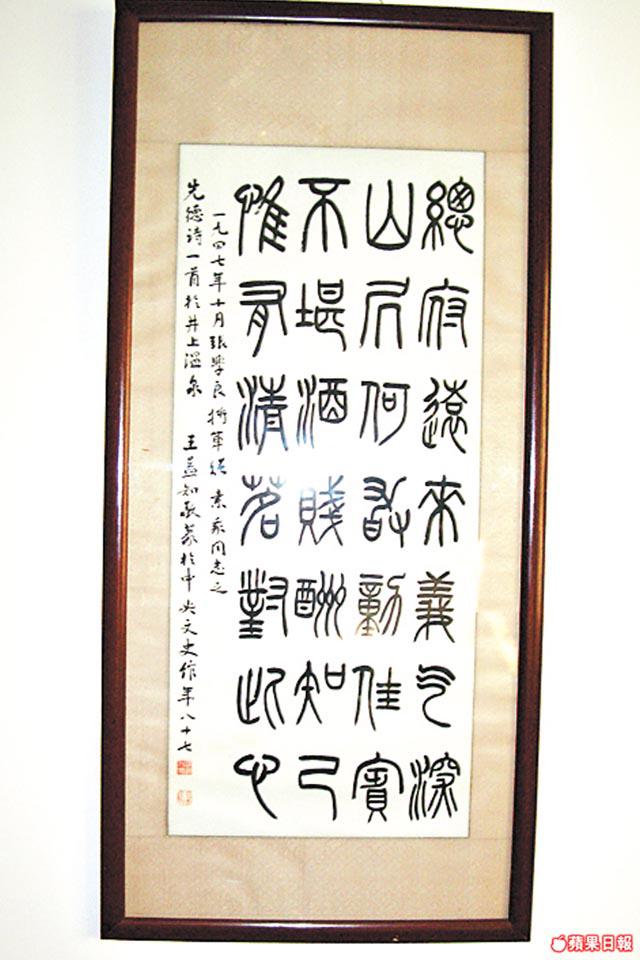 總府遠來義气深
山凥何敢動佳賓
不堪酒賤酬知己
惟有清茗對此心
一九四七年十月張學良將軍 素我同志之
先德詩一首於井上溫泉 王益知敬篆於中央文史館年八十七
蘋果日報